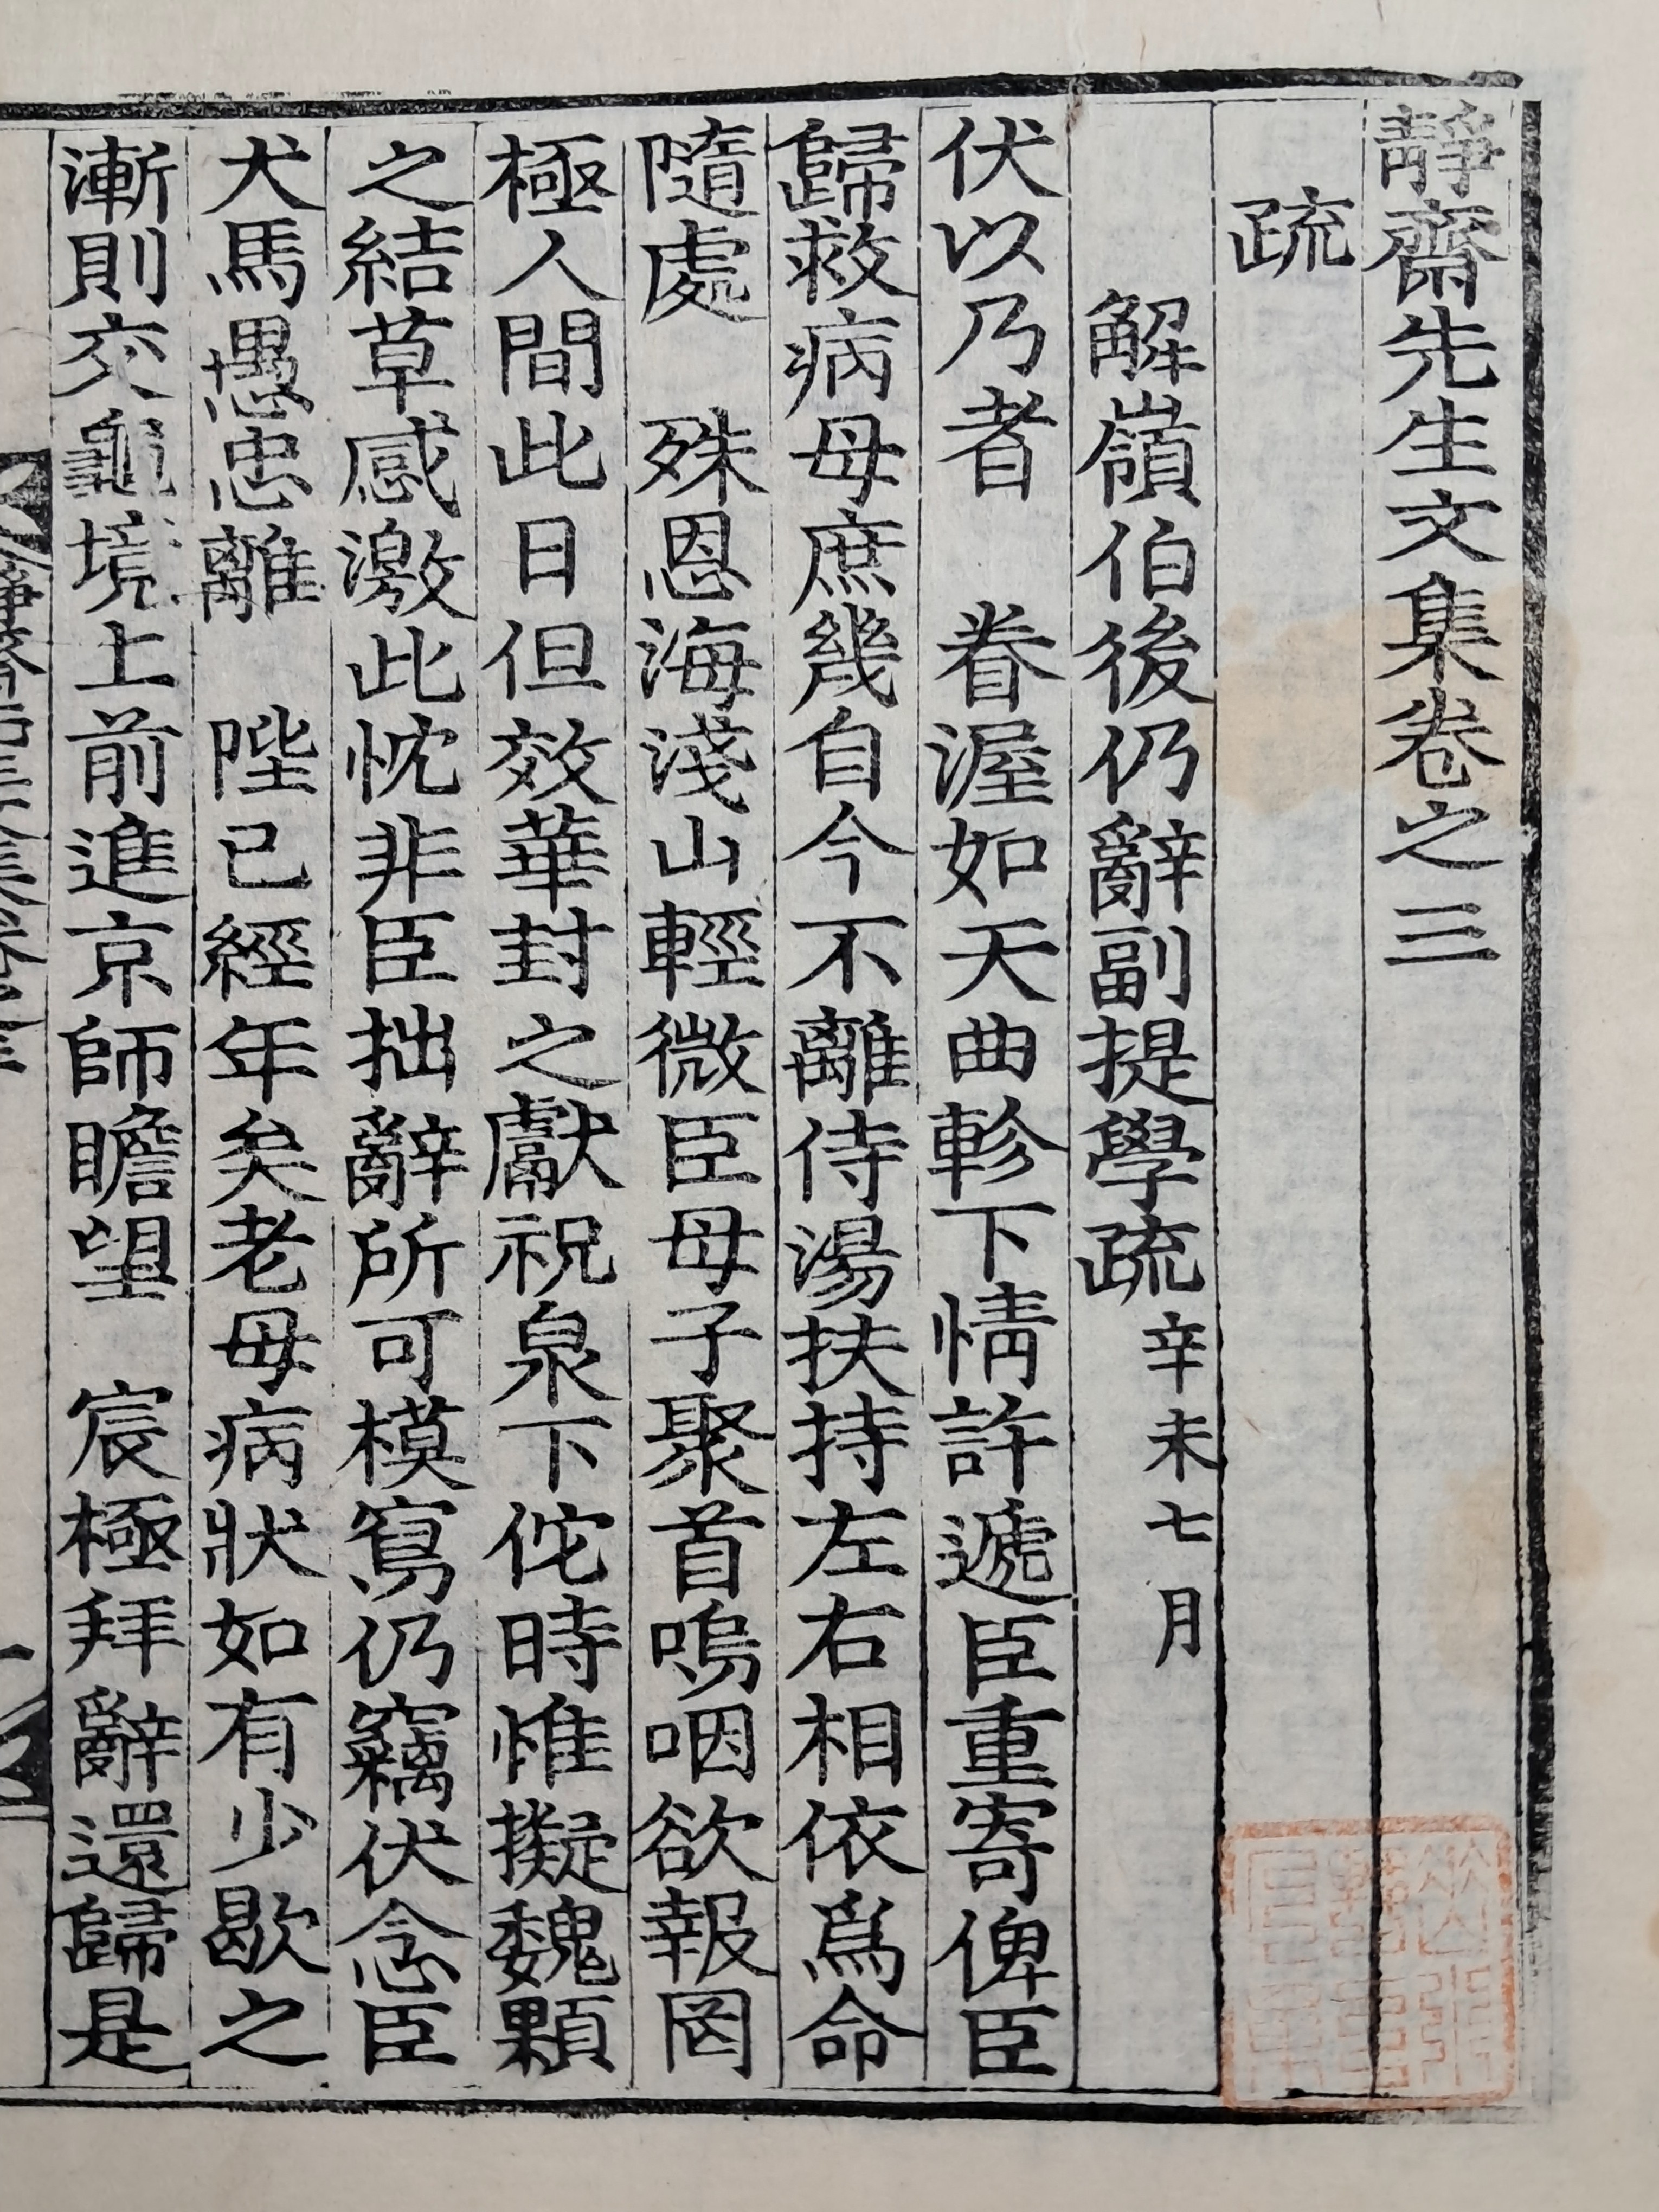 靜齋先生文集卷之三
疏
解嶺伯後仍辭副提學疏 辛未七月
伏以乃者 眷渥如天曲軫下情許遞臣重寄俾臣
歸救病母庶幾自今不離侍湯扶持左右相依爲命
隨處 殊恩海淺山輕微臣母子聚首嗚咽欲報罔
極人間此日但效華封之獻祝泉下佗時惟擬魏顆
之結草感激此忱非臣拙辭所可模寫仍竊伏念臣
犬馬愚忠離 陛已經年矣老母病狀如有少歇之
漸則交龜境上前進京師瞻望 宸極拜辭還歸是